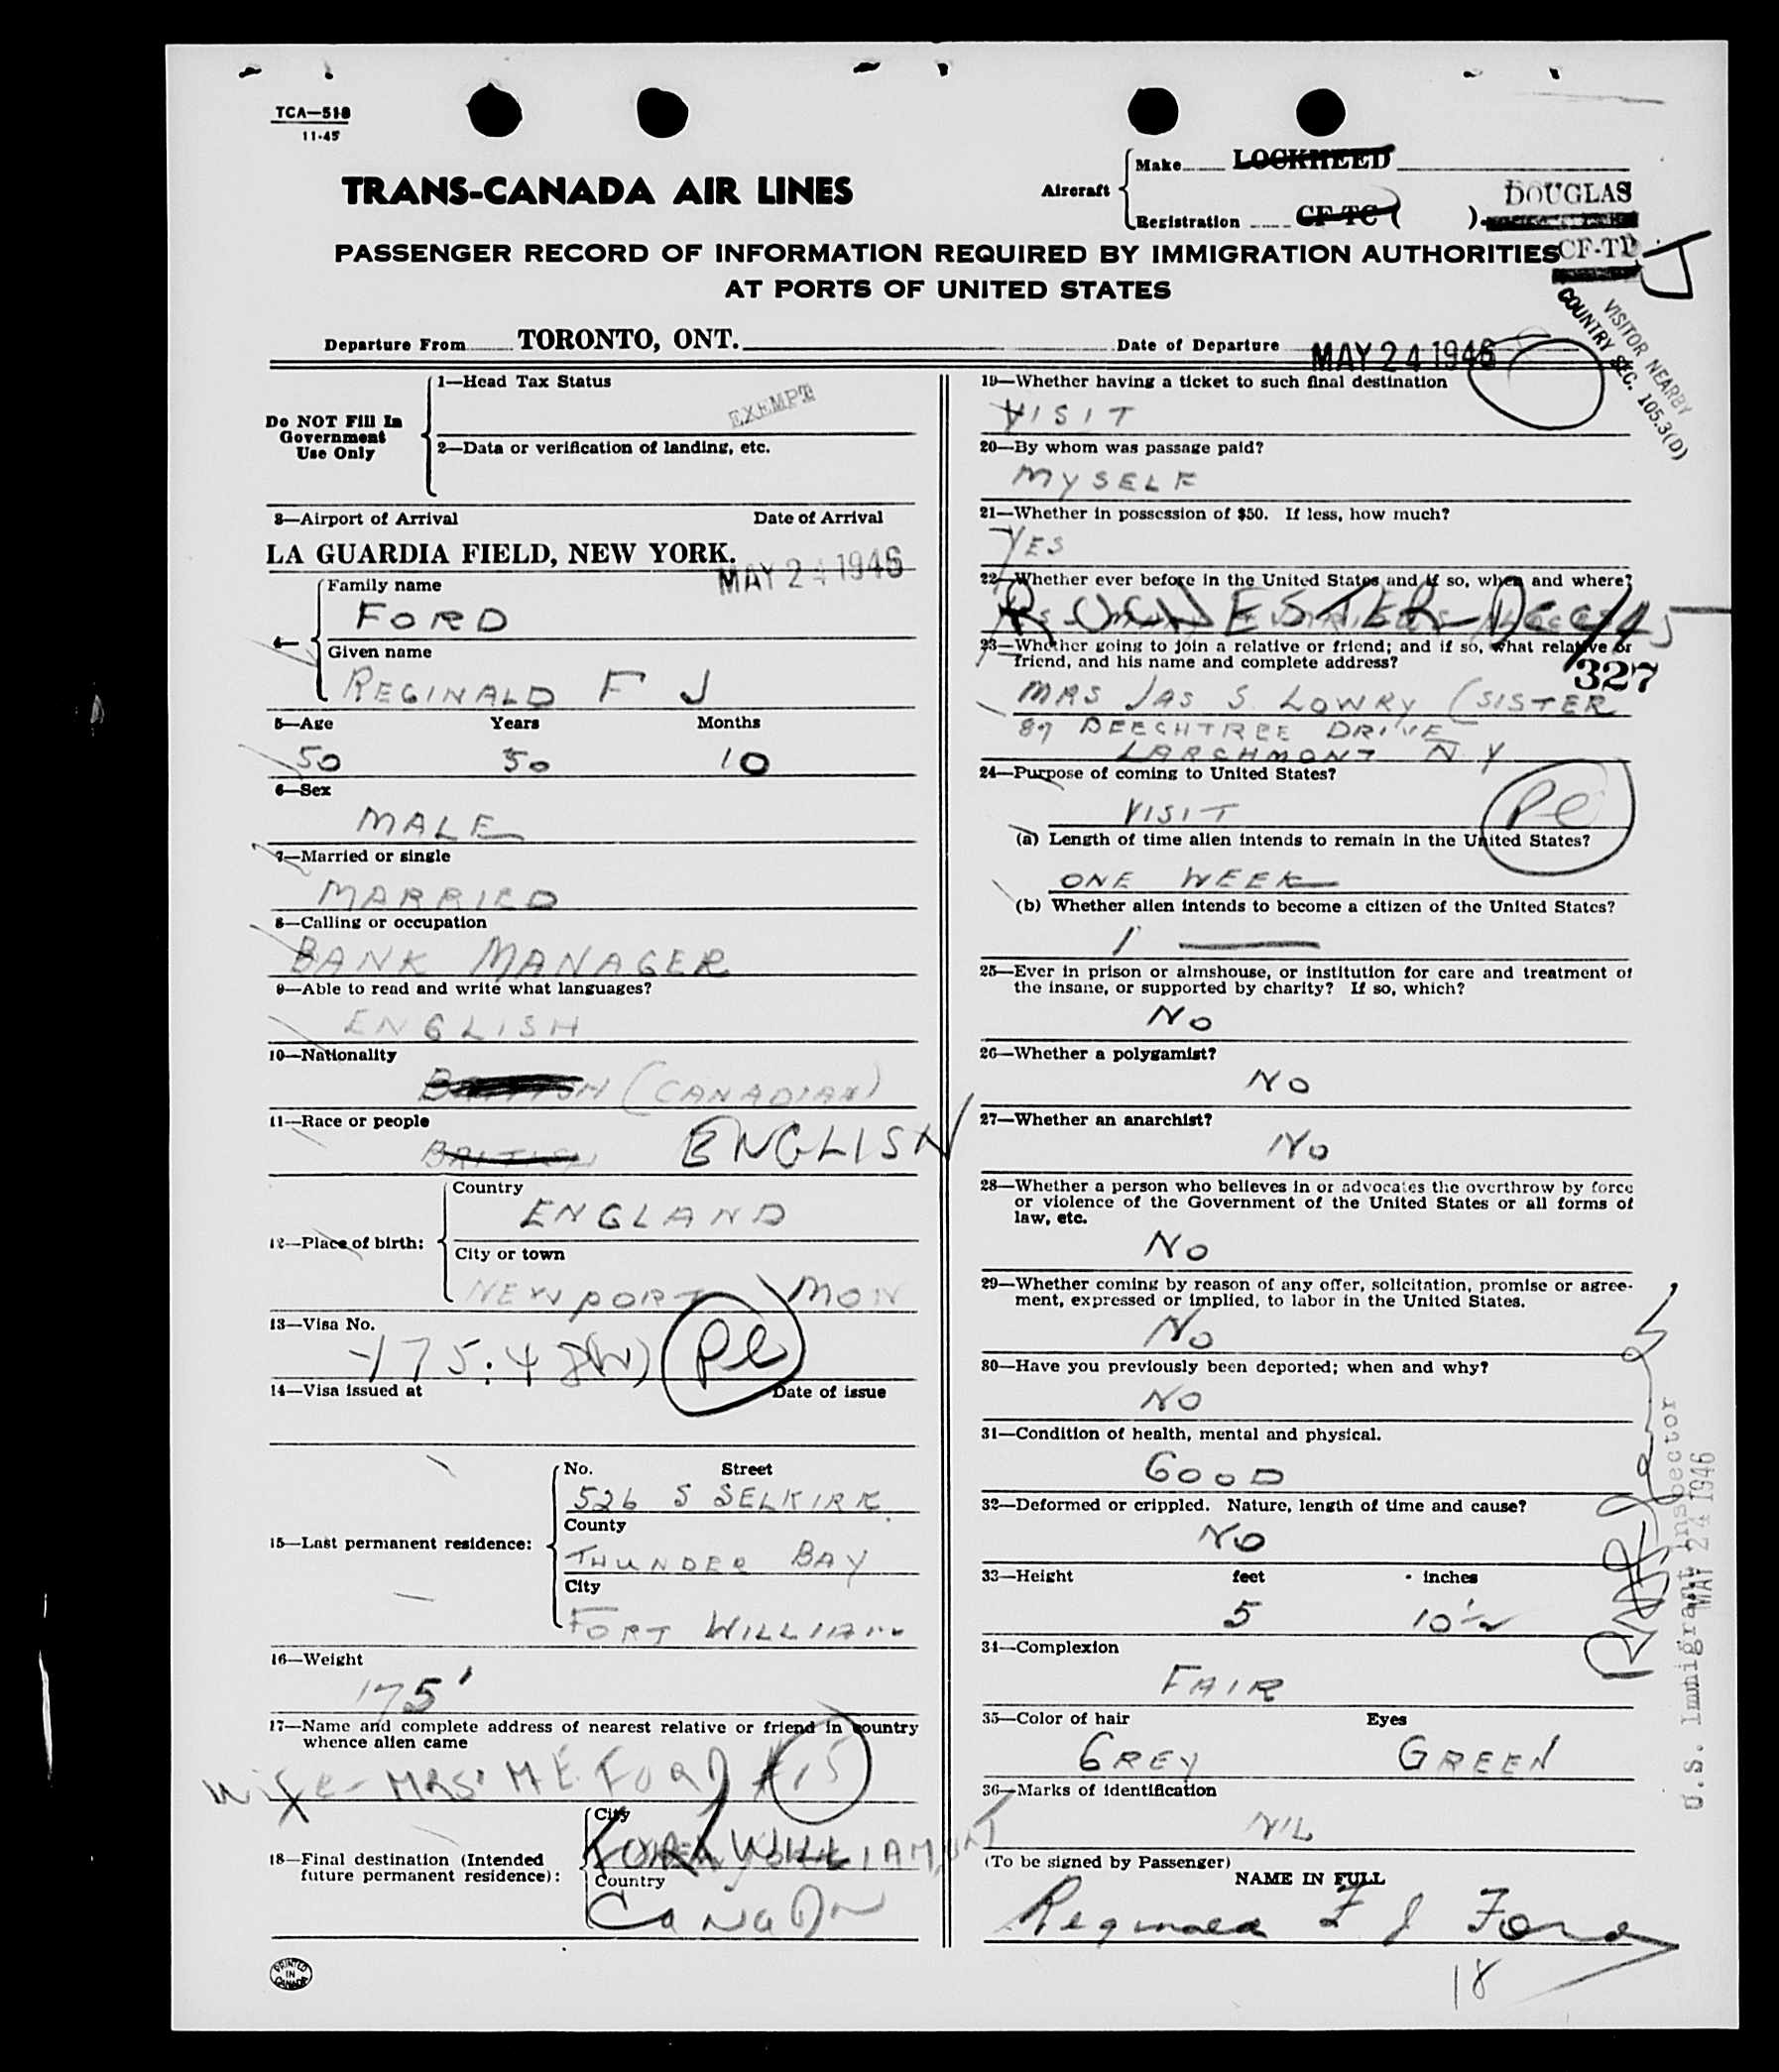 TCA—518
11-45
TRANS-CANADA AIR LINES
Aircraft
Make LOCKHEED
DOUGLAS
Registration CF-TC ( )
CF-TD
PASSENGER RECORD OF INFORMATION REQUIRED BY IMMIGRATION AUTHORITIES
AT PORTS OF UNITED STATES
VISITOR NEARBY
COUNTRY SEC. 105.3(D)
Departure From TORONTO, ONT.
Date of Departure MAY 24 1946
Do NOT Fill In
Government
Use Only
1—Head Tax Status
EXEMPT
2—Data or verification of landing, etc.
3—Airport of Arrival Date of Arrival
LA GUARDIA FIELD, NEW YORK.
MAY 24 1946
4—
Family name
FORD
Given name
REGINALD F J
5—Age Years Months
50 50 10
6—Sex
MALE
7—Married or single
MARRIED
8—Calling or occupation
BANK MANAGER
9—Able to read and write what languages?
ENGLISH
10—Nationality
BRITISH (CANADIAN)
11—Race or people
BRITISH ENGLISH
12—Place of birth:
Country
ENGLAND
City or town
NEWPORT MON
13—Visa No.
175.48(W) Pl
14—Visa issued at Date of issue
15—Last permanent residence:
No. Street
526 S SELKIRK
County
THUNDER BAY
City
FORT WILLIAM
16—Weight
175
17—Name and complete address of nearest relative or friend in country
whence alien came
Wife - MRS. M E. FORD #15
18—Final destination (Intended
future permanent residence):
City
FORT WILLIAM, ONT
Country
CANADA
PRINTED
IN
CANADA
19—Whether having a ticket to such final destination
VISIT
20—By whom was passage paid?
MYSELF
21—Whether in possession of $50. If less, how much?
YES
22—Whether ever before in the United States and if so, when and where?
ROCHESTER - DEC/45
23—Whether going to join a relative or friend; and if so, what relative or
friend, and his name and complete address?
327
MRS JAS S. LOWRY (SISTER
89 BEECHTREE DRIVE
LARCHMONT N Y
24—Purpose of coming to United States?
VISIT
Pl
(a) Length of time alien intends to remain in the United States?
ONE WEEK
(b) Whether alien intends to become a citizen of the United States?
25—Ever in prison or almshouse, or institution for care and treatment of
the insane, or supported by charity? If so, which?
NO
26—Whether a polygamist?
NO
27—Whether an anarchist?
NO
28—Whether a person who believes in or advocates the overthrow by force
or violence of the Government of the United States or all forms of
law, etc.
NO
29—Whether coming by reason of any offer, solicitation, promise or agree-
ment, expressed or implied, to labor in the United States.
NO
30—Have you previously been deported; when and why?
NO
31—Condition of health, mental and physical.
GOOD
32—Deformed or crippled. Nature, length of time and cause?
NO
33—Height feet inches
5 10½
34—Complexion
FAIR
35—Color of hair Eyes
GREY GREEN
36—Marks of identification
NIL
(To be signed by Passenger)
NAME IN FULL
Reginald F J Ford
18
U.S. Immigrant Inspector
MAY 24 1946